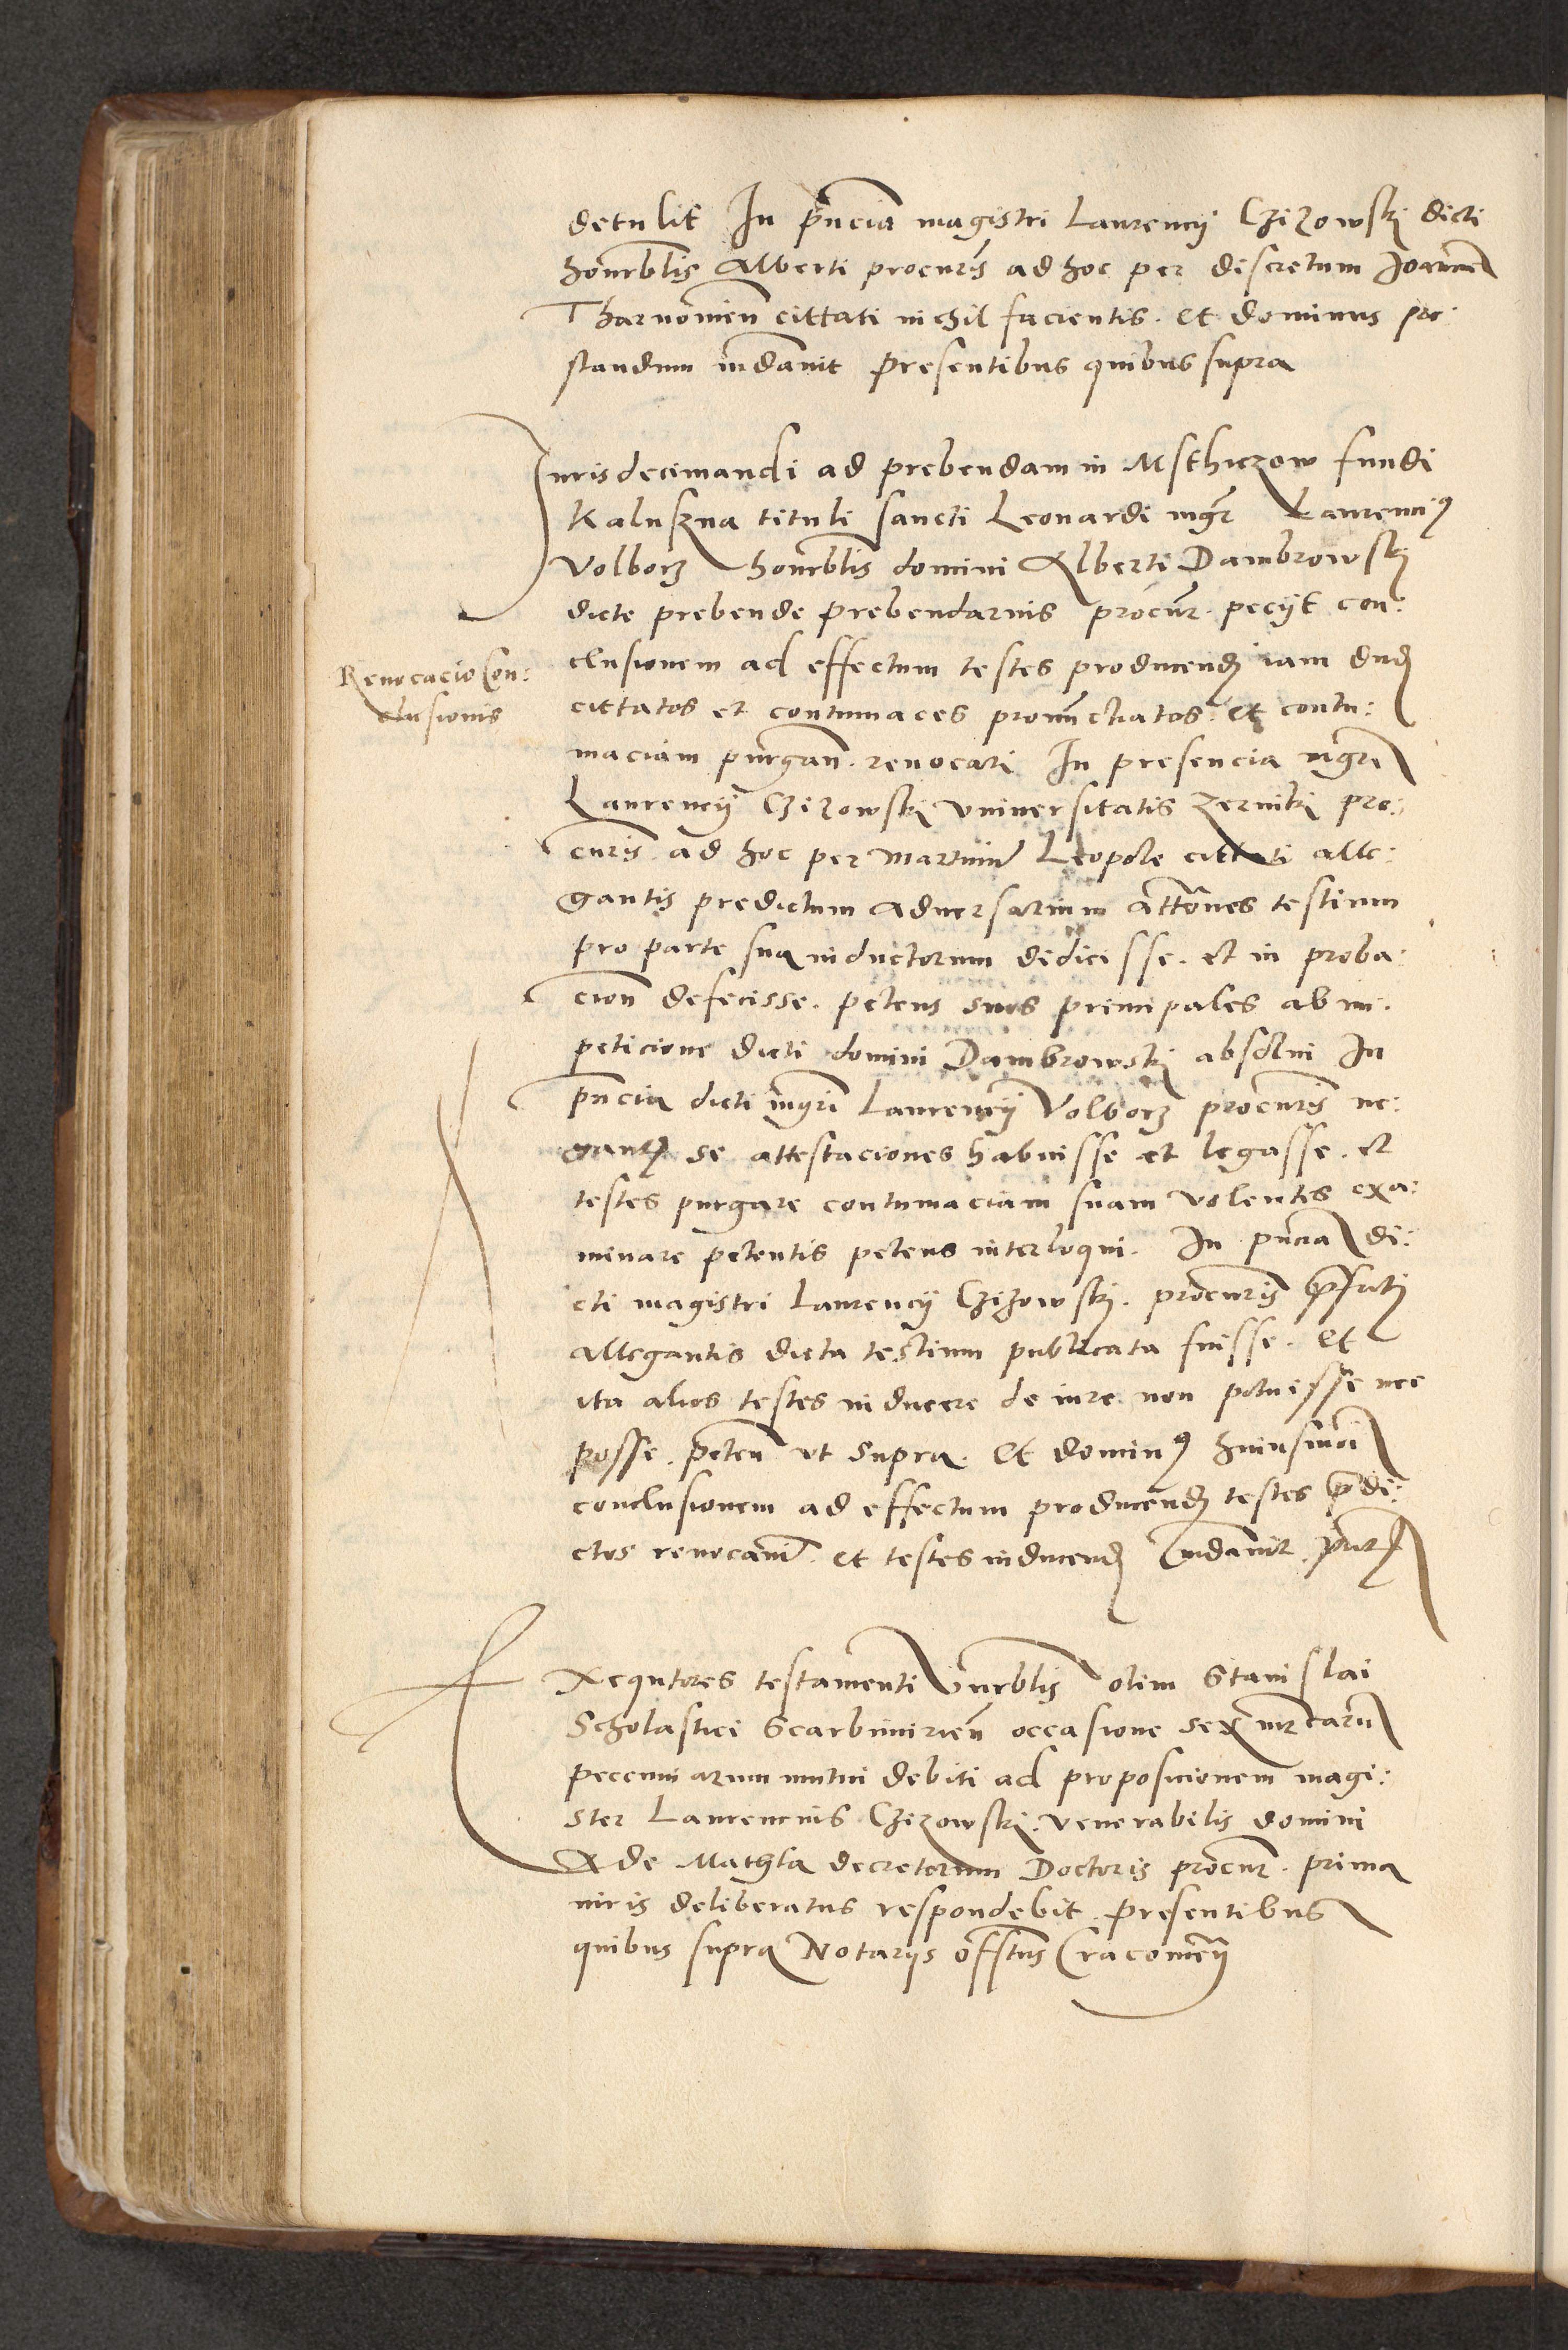 detulit In pncia magistri Laurencij Czizowski dicti
honrblis Alberti procuris ad hoc per discretum Joannem
Tharnouien cittati nichil facientis. et dominus pre:
standum mdauit presentibus quibus supra
Juris decimandi ad prebendam in Msthiczow fundi
Kaluszna tituli sancti Leonardi mgr Laurenci9
Volborz honrblis domini Alberti Dambrowski
dicte prebende prebendarius procur. pecijt con:
Reuocacio Con:
clusionis
clusionem ad effectum testes producendj iam dudj
cittatos et contumaces pronunctiatos. et contu:
maciam purgan. reuocari In presencia mgri
Laurencij Czizowski vniuersitatis Zernikj pro:
curis ad hoc per martinum Leopole cittati alle:
gantis predictum aduersarium attones testium
pro parte sua inductorum didicisse. et in proba:
cion defecisse. petens suos principales ab im:
peticione dicti domini Dambrowski absolui In
pncia dicti mgri Laurencij Volborz procuris ne:
gantis se attestaciones habuisse et legasse. et
testes purgare contumaciam suam volentes exa:
minare petentis petens interloqui. In pncia di:
cti magistri Laurencij Czizowski. procuris prefati
allegantis dicta testium publicata fuisse. et
ita alios testes inducere de iure non potuisse nec
posse. peten vt supra. et domin9 huiusmoi
conclusionem ad effectum producendj testes predi:
ctos reuocauit. et testes inducendj mdauit. pntibus
Exequtores testamenti vnrblis olim Stanislai
Scholastici Scarbimirien occasione sex mrcarum
peccuniarum mutui debiti ad proposicionem magi:
ster Laurencius Czizowski. venerabilis domini
A de Mathla decretorum Doctoris procur. prima
iuris deliberatus respondebit. presentibus
quibus supra Notarijs offstus Cracouien